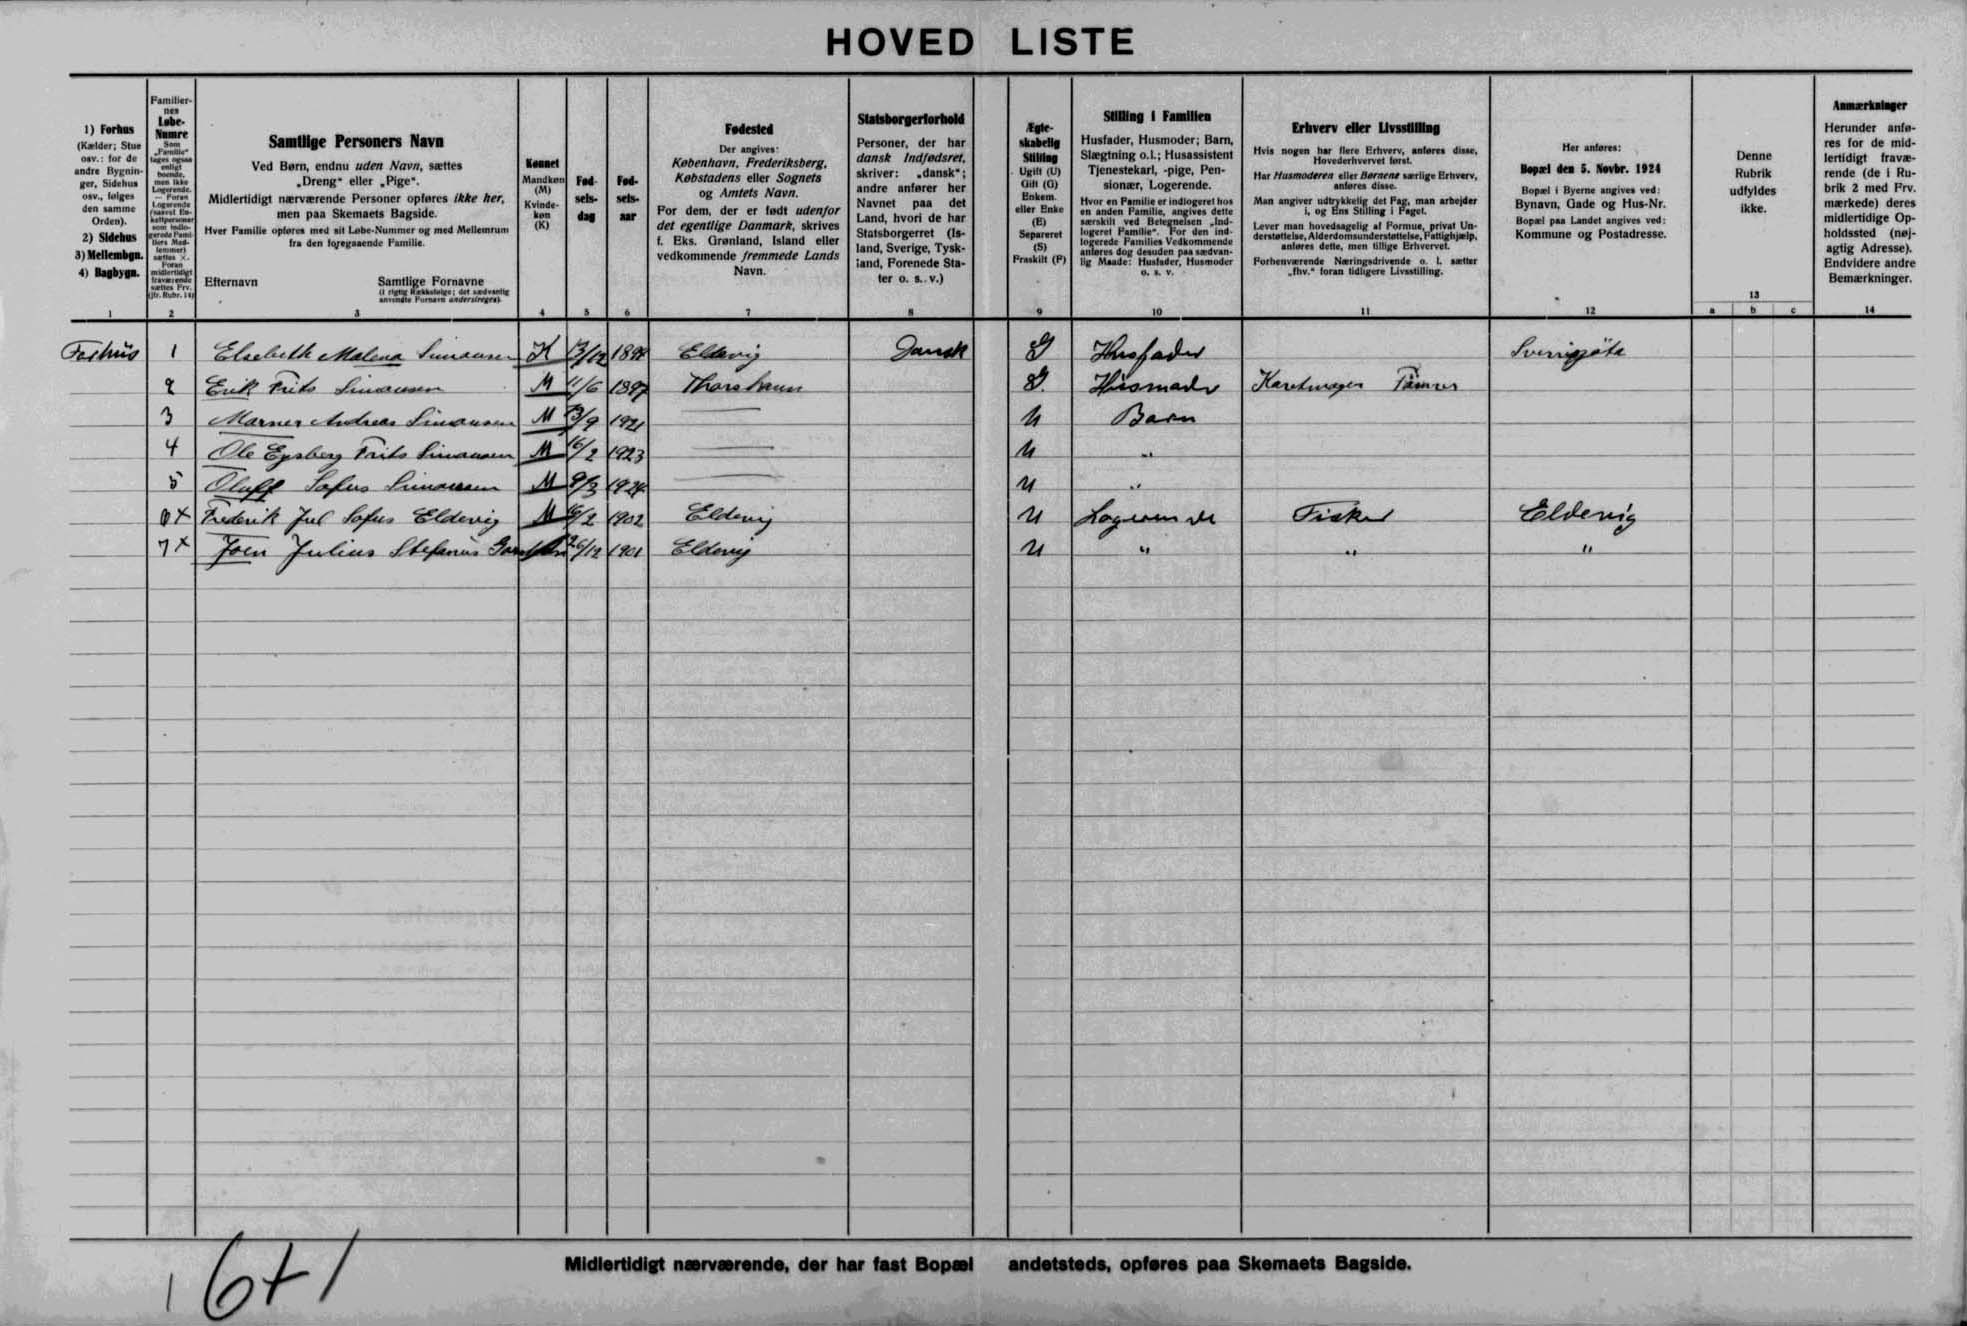 HOVED LISTE
1) Forhus
(Kælder; Stue
osv.: for de
andre Bygnin-
ger, Sidehus
osv., følges
den samme
Orden).
2) Sidehus
3) Mellembgn.
4) Bagbygn.
1
Familier-
nes
Løbe-
Numre
Som
„Familie“
tages ogsaa
enligt
boende,
men ikke
Logerende.
— Foran
Logerende
(saavel En-
keltpersoner
som indlo-
gerede Fami-
liers Med-
lemmer)
sættes ×.
Foran
midlertidigt
fraværende
sættes Frv.
(jfr. Rubr. 14)
2
Samtlige Personers Navn
Ved Børn, endnu uden Navn, sættes
„Dreng“ eller „Pige“.
Midlertidigt nærværende Personer opføres ikke her,
men paa Skemaets Bagside.
Hver Familie opføres med sit Løbe-Nummer og med Mellemrum
fra den foregaaende Familie.
Efternavn Samtlige Fornavne
(i rigtig Rækkefølge; det sædvanlig
anvendte Fornavn understreges).
3
Kønnet
Mandkøn
(M)
Kvinde-
køn
(K)
4
Fød-
sels-
dag
5
Fød-
sels-
aar
6
Fødested
Der angives:
København, Frederiksberg,
Købstadens eller Sognets
og Amtets Navn.
For dem, der er født udenfor
det egentlige Danmark, skrives
f. Eks. Grønland, Island eller
vedkommende fremmede Lands
Navn.
7
Statsborgerforhold
Personer, der har
dansk Indfødsret,
skriver: „dansk“;
andre anfører her
Navnet paa det
Land, hvori de har
Statsborgerret (Is-
land, Sverige, Tysk-
land, Forenede Sta-
ter o. s. v.)
8
Ægte-
skabelig
Stilling
Ugift (U)
Gift (G)
Enkem.
eller Enke
(E)
Separeret
(S)
Fraskilt (F)
9
Stilling i Familien
Husfader, Husmoder; Barn,
Slægtning o.l.; Husassistent
Tjenestekarl, -pige, Pen-
sionær, Logerende.
Hvor en Familie er indlogeret hos
en anden Familie, angives dette
særskilt ved Betegnelsen „Ind-
logeret Familie“. For den ind-
logerede Families Vedkommende
anføres dog desuden paa sædvan-
lig Maade: Husfader, Husmoder
o. s. v.
10
Erhverv eller Livsstilling
Hvis nogen har flere Erhverv, anføres disse,
Hovederhvervet først.
Har Husmoderen eller Børnene særlige Erhverv,
anføres disse.
Man angiver udtrykkelig det Fag, man arbejder
i, og Ens Stilling i Faget.
Lever man hovedsagelig af Formue, privat Un-
derstøttelse, Alderdomsunderstøttelse, Fattighjælp,
anføres dette, men tillige Erhvervet.
Forhenværende Næringsdrivende o. l. sætter
„fhv.“ foran tidligere Livsstilling.
11
Her anføres:
Bopæl den 5. Novbr. 1924
Bopæl i Byerne angives ved:
Bynavn, Gade og Hus-Nr.
Bopæl paa Landet angives ved:
Kommune og Postadresse.
12
Denne
Rubrik
udfyldes
ikke.
13
a b c
Anmærkninger
Herunder anfø-
res for de mid-
lertidigt fravæ-
rende (de i Ru-
brik 2 med Frv.
mærkede) deres
midlertidige Op-
holdssted (nøj-
agtig Adresse).
Endvidere andre
Bemærkninger.
14
Forhus 1 Elsebeth Malena Simonsen K 13/12 Eldevig Dansk G Husfader
2 Erik Frits Simonsen M 11/6 1897 Thorshavn G Husmoder Tømrer
3 Marner Andreas Simonsen M 13/9 1921 — U Barn
4 Ole Frits Simonsen M 16/2 1923 — U "
5 Oluff Sofus Simonsen M 9/3 1924 — U "
6 × Frederik Jul Sofus Eldevig M 16/2 1902 Eldevig U Logerende Fisker Eldevig
7 × Joen Julius Stefanus 26/12 1901 Eldevig U " " "
Midlertidigt nærværende, der har fast Bopæl andetsteds, opføres paa Skemaets Bagside.
1 6+1